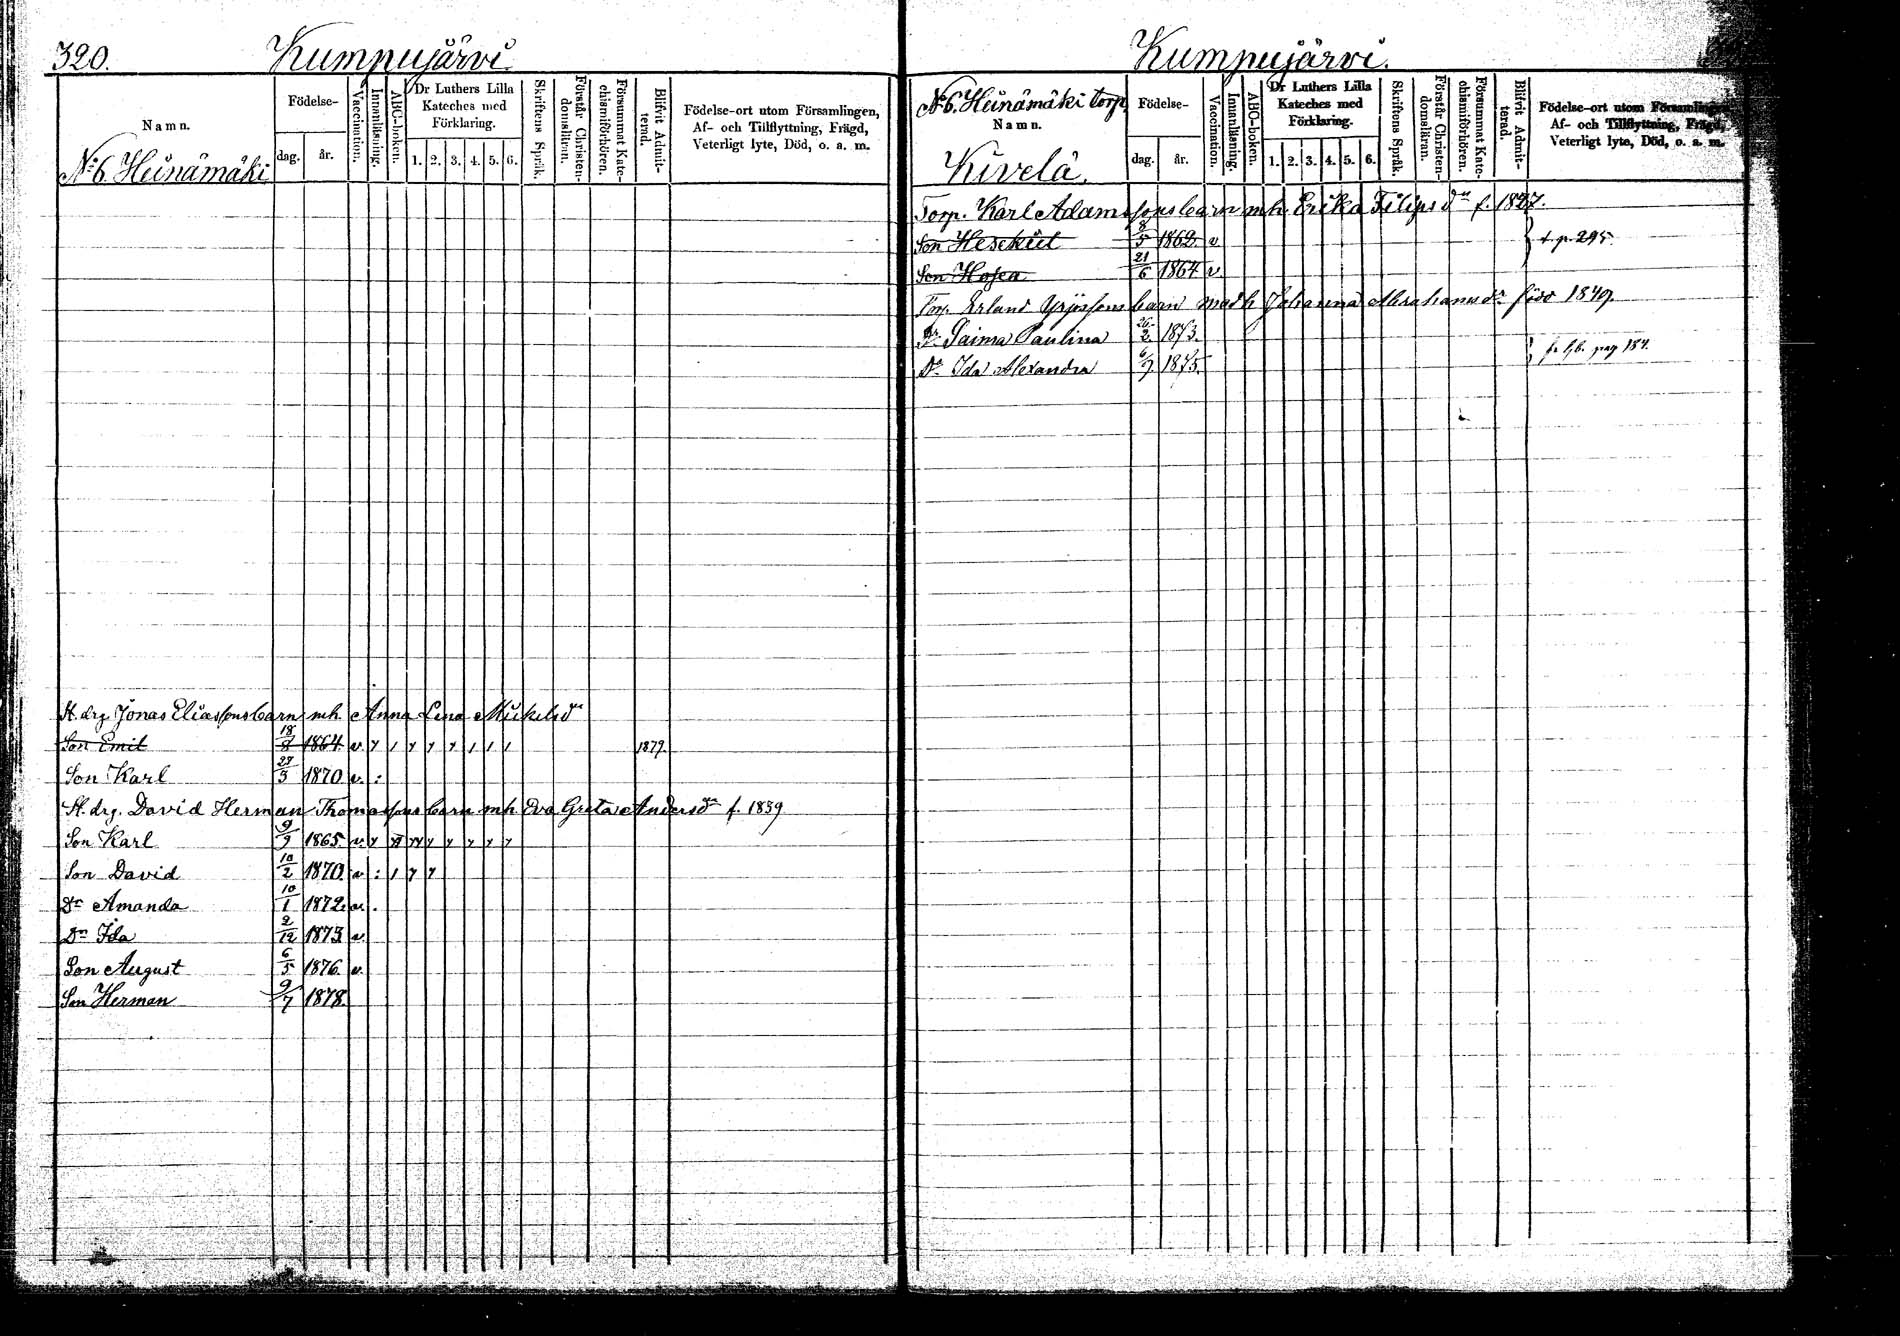 320.
Kumpujärvi.
Namn.
Födelse-
dag.
år.
Vaccination.
Innanläsning.
ABC-boken.
Dr Luthers Lilla
Kateches med
Förklaring.
1. 2. 3. 4. 5. 6.
Skriftens Språk.
Förstår Christen-
domsläran.
Försummat Kate-
chismiförhören.
Blifvit Admit-
terad.
Födelse-ort utom Församlingen,
Af- och Tillflyttning, Frägd,
Veterligt lyte, Död, o. a. m.
No 6. Heinämäki
St. drg Jonas Eliassons barn mh. Anna Lena Mickelsdr
Son Emil 18/8 1864. v. 1879.
Son Karl 27/3 1870 v. :
St. drg. David Herman Thomassons barn mh Eva Greta Andersdr f. 1839
Son Karl 9/9 1865. v.
Son David 10/2 1870. v :
Dr Amanda 10/1 1872. v. .
Dr Ida 2/12 1873 v.
Son August 6/5 1876. v.
Son Herman 9/7 1878.
Kumpujärvi.
No 6. Heinämäki torp.
Namn.
Kivelä.
Födelse-
dag.
år.
Vaccination.
Innanläsning.
ABC-boken.
Dr Luthers Lilla
Kateches med
Förklaring.
1. 2. 3. 4. 5. 6.
Skriftens Språk.
Förstår Christen-
domsläran.
Försummat Kate-
chismiförhören.
Blifvit Admit-
terad.
Födelse-ort utom Församlingen,
Af- och Tillflyttning, Frägd,
Veterligt lyte, Död, o. a. m.
Torp. Karl Adamssons barn mh. Erika Filipsdr f. 1827.
Son Heskiel 8/5 1862. v t. p. 295.
Son Hosea 21/6 1864 v.
Torp. Erland Yrjössons barn med h Johanna Abrahamsdr född 1849.
Dr Saima Paulina 26/2. 1873.
Dr Ida Alexandra 6/9 1875. pag 184.